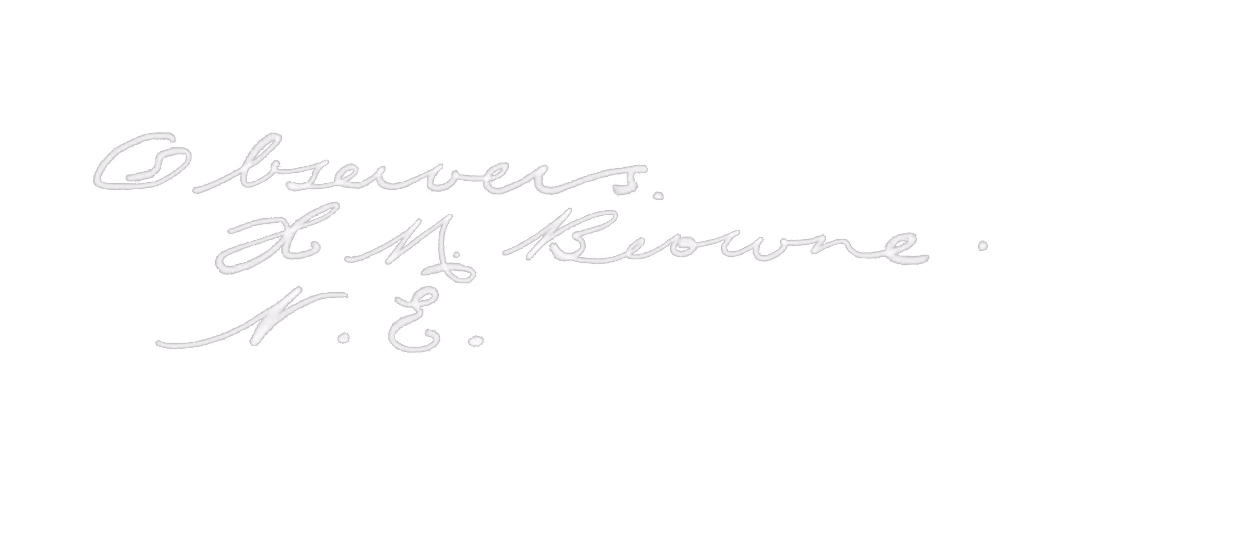 Observers.
H. M. Browne.
N. E.